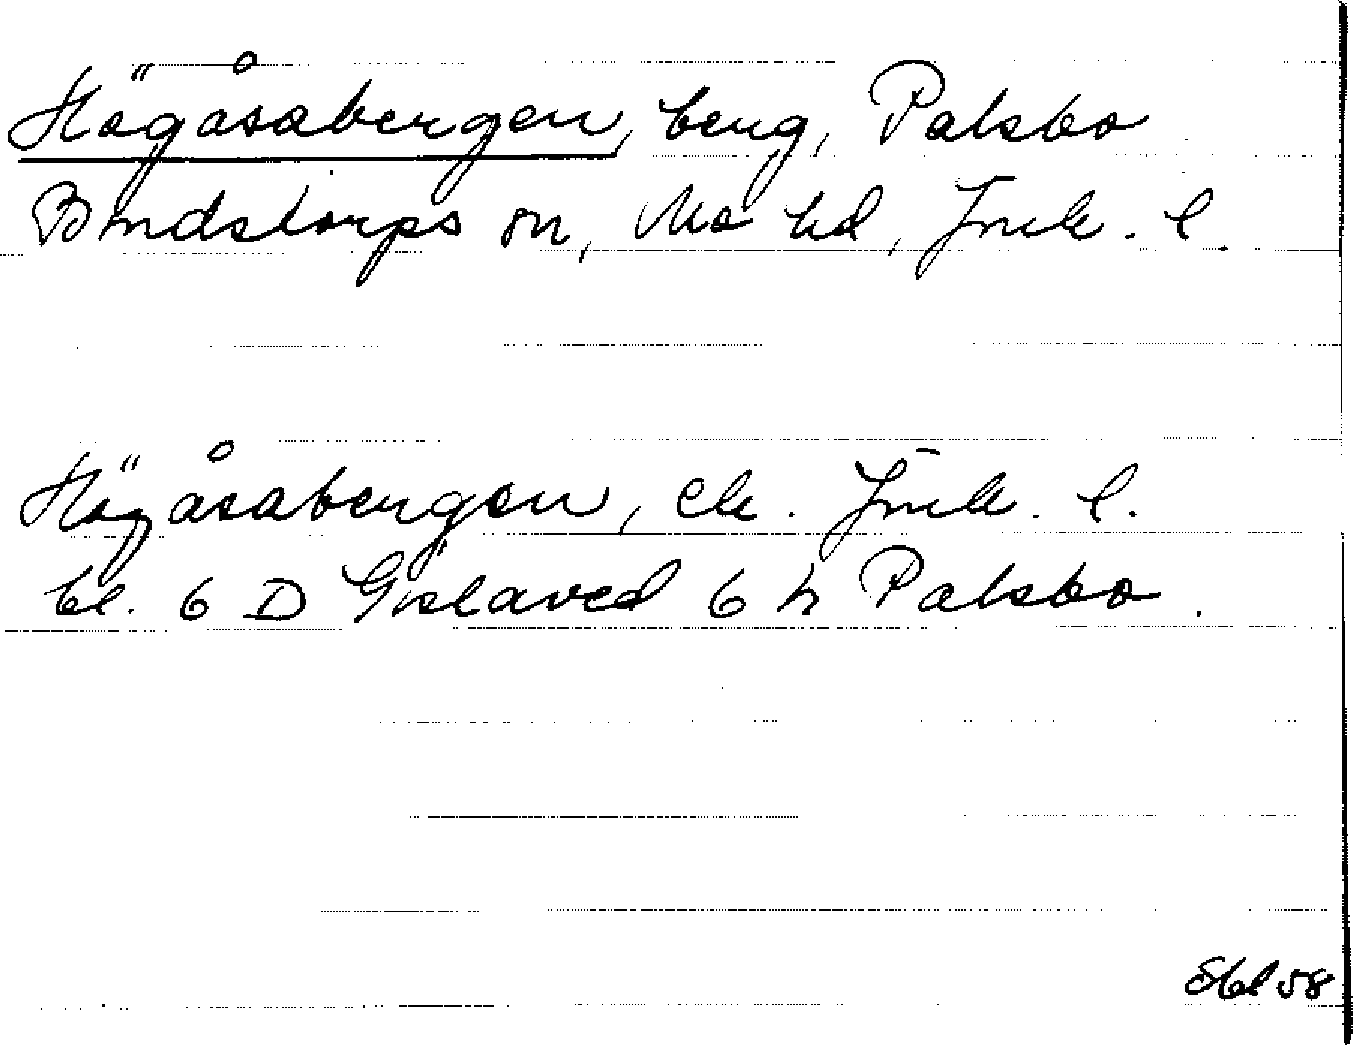 Högåsabergen, berg, Palsbo
Bondstorps sn, Mo hd, Jönk. l.
Högåsabergen, ek. Jönk. l.
bl. 6 D Gislaved 6 h Palsbo.